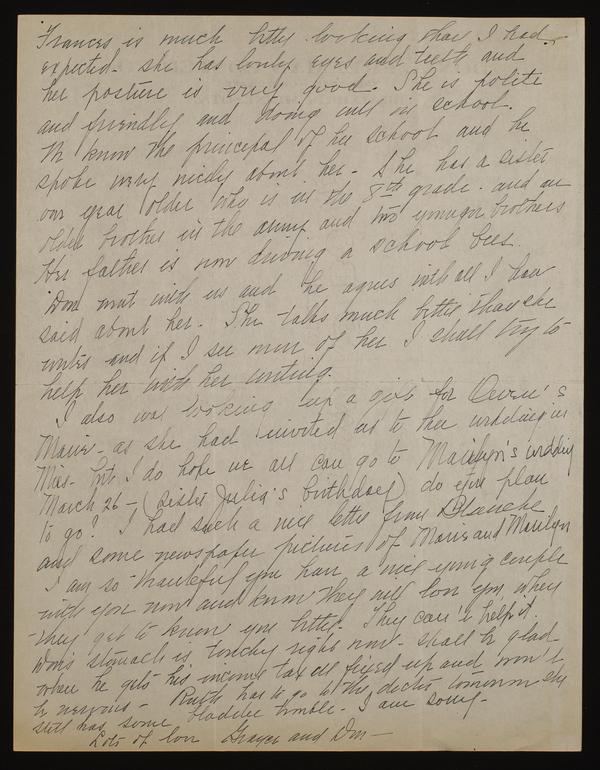 Frances is much better looking than I had
expected - she has lovely eyes and teeth and
her posture is very good. She is polite
and friendly and doing well in school.
We know the principal of her school and he
spoke very nicely about her - She has a sister
one year older who is in the 8th grade - and an
older brother in the army and two younger brothers
Her father is now driving a school bus.
Don went with us and he agrees with all I have
said about her. She talks much better than she
writes and if I see more of her I shall try to
help her with her writing.
I also was looking up a gift for Owen's
Marie - as she had invited us to the wedding in
Mas - but I do hope we all can go to Marilyn's wedding
March 26 - (sister Julia's birthday) do you plan
to go? I had such a nice letter from Blanche
and some newspaper pictures of Marie and Marilyn
I am so thankful you have a nice young couple
with you now and know they will love you when
they get to know you better. They can't help it.
Don's stomach is touchy right now - shall be glad
when he gets his income tax all fixed up and won't
be nervous - Ruth has to go to the doctor tomorrow she
still has some bladder trouble - I am sorry -
Lots of love Grayce and Don -